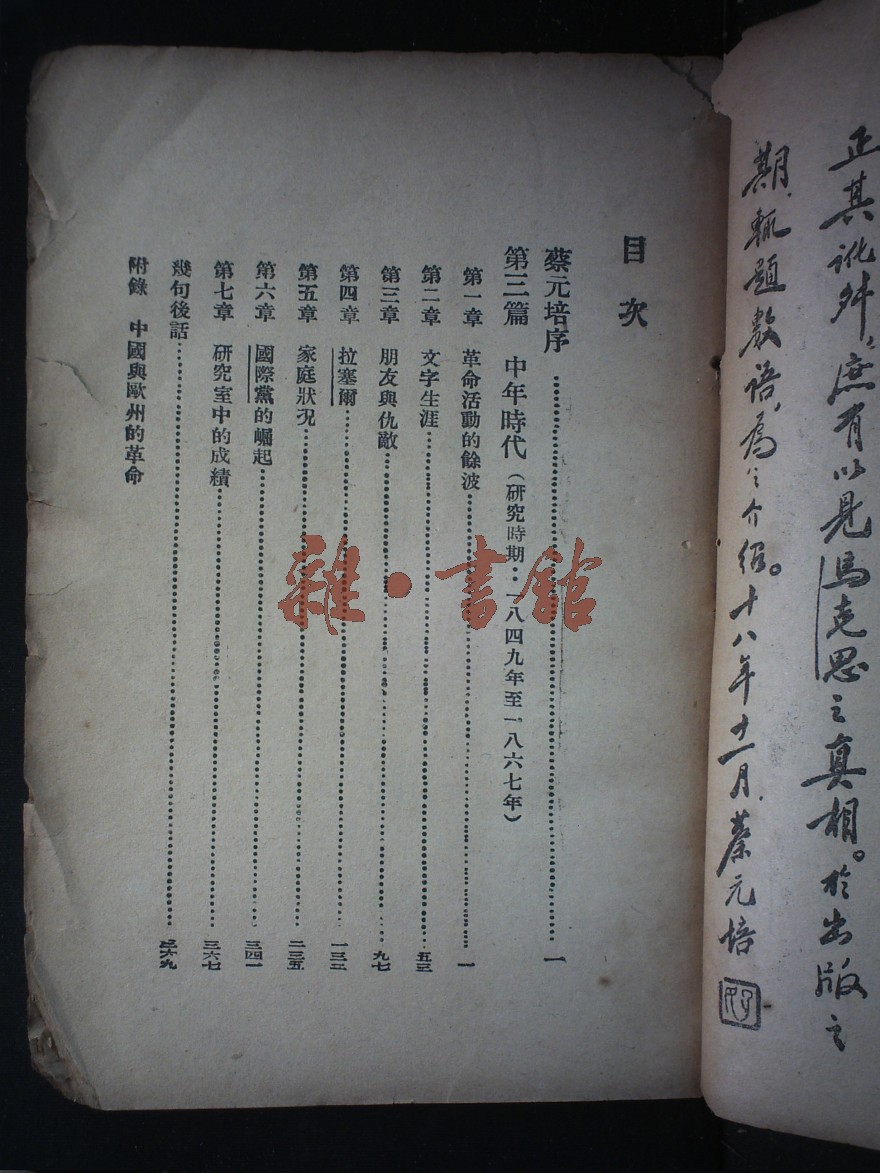 正其訛舛,庶有以見馬克思之真相。於出版之
期,輒題數語,為之介紹。十八年十一月,蔡元培
目次
蔡元培序……一
第三篇 中年時代(研究時期:一八四九年至一八六七年)
第一章 革命活動的餘波……一
第二章 文字生涯……五三
第三章 朋友與仇敵……九七
第四章 拉塞爾……一三三
第五章 家庭狀況……二三五
第六章 國際黨的崛起……三四一
第七章 研究室中的成績……三六七
幾句後話……三六九
附錄 中國與歐州的革命
雜·書館